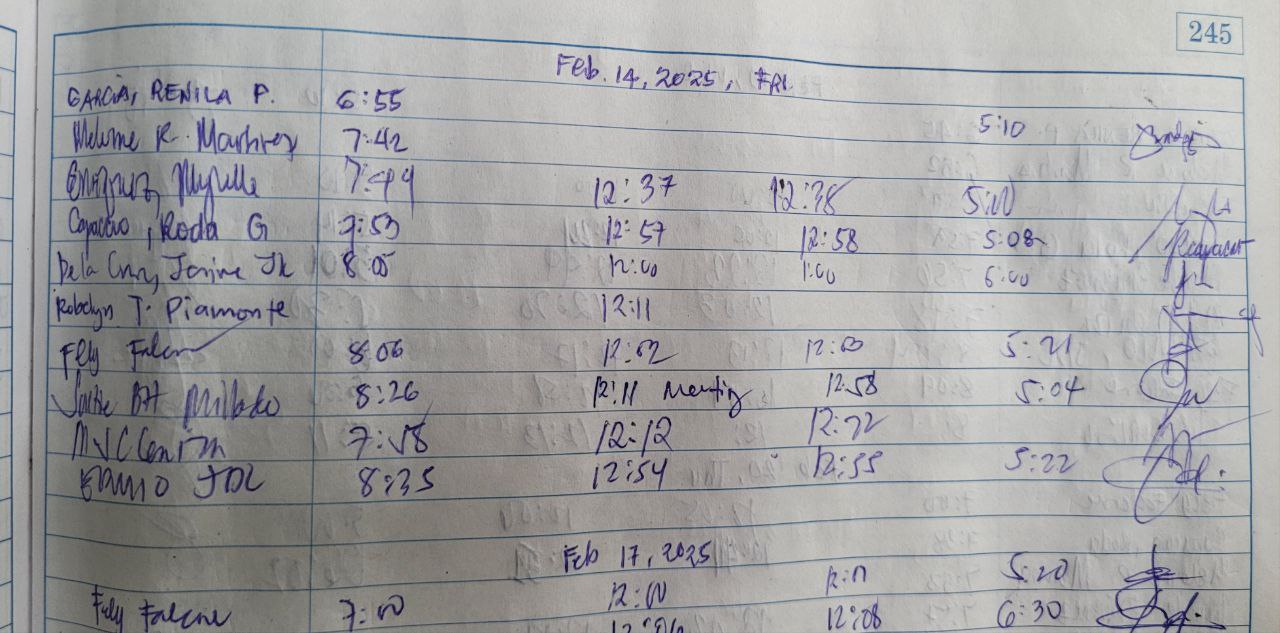 245
Feb. 14, 2025, FRI.
GARCIA, RENILA P. 6:55
Melume R. Martinez 7:42 5:10
Enriquez, Myrille 7:49 12:37 12:38 5:10
Capacio, Roda G 7:53 12:57 12:58 5:08
Dela Cruz, Janine Jk 8:05 12:00 1:00 6:00
Robelyn T. Piamonte 12:11
Fely Falcne 8:06 12:02 12:03 5:21
BH Millado 8:26 12:11 Meeting 12:58 5:04
MJC Cenizn 7:58 12:12 12:22
JDL 8:35 12:54 12:55 5:22
Feb 17, 2025
Fely Falcne 7:00 12:00 12:11 5:20
12:06 12:08 6:30